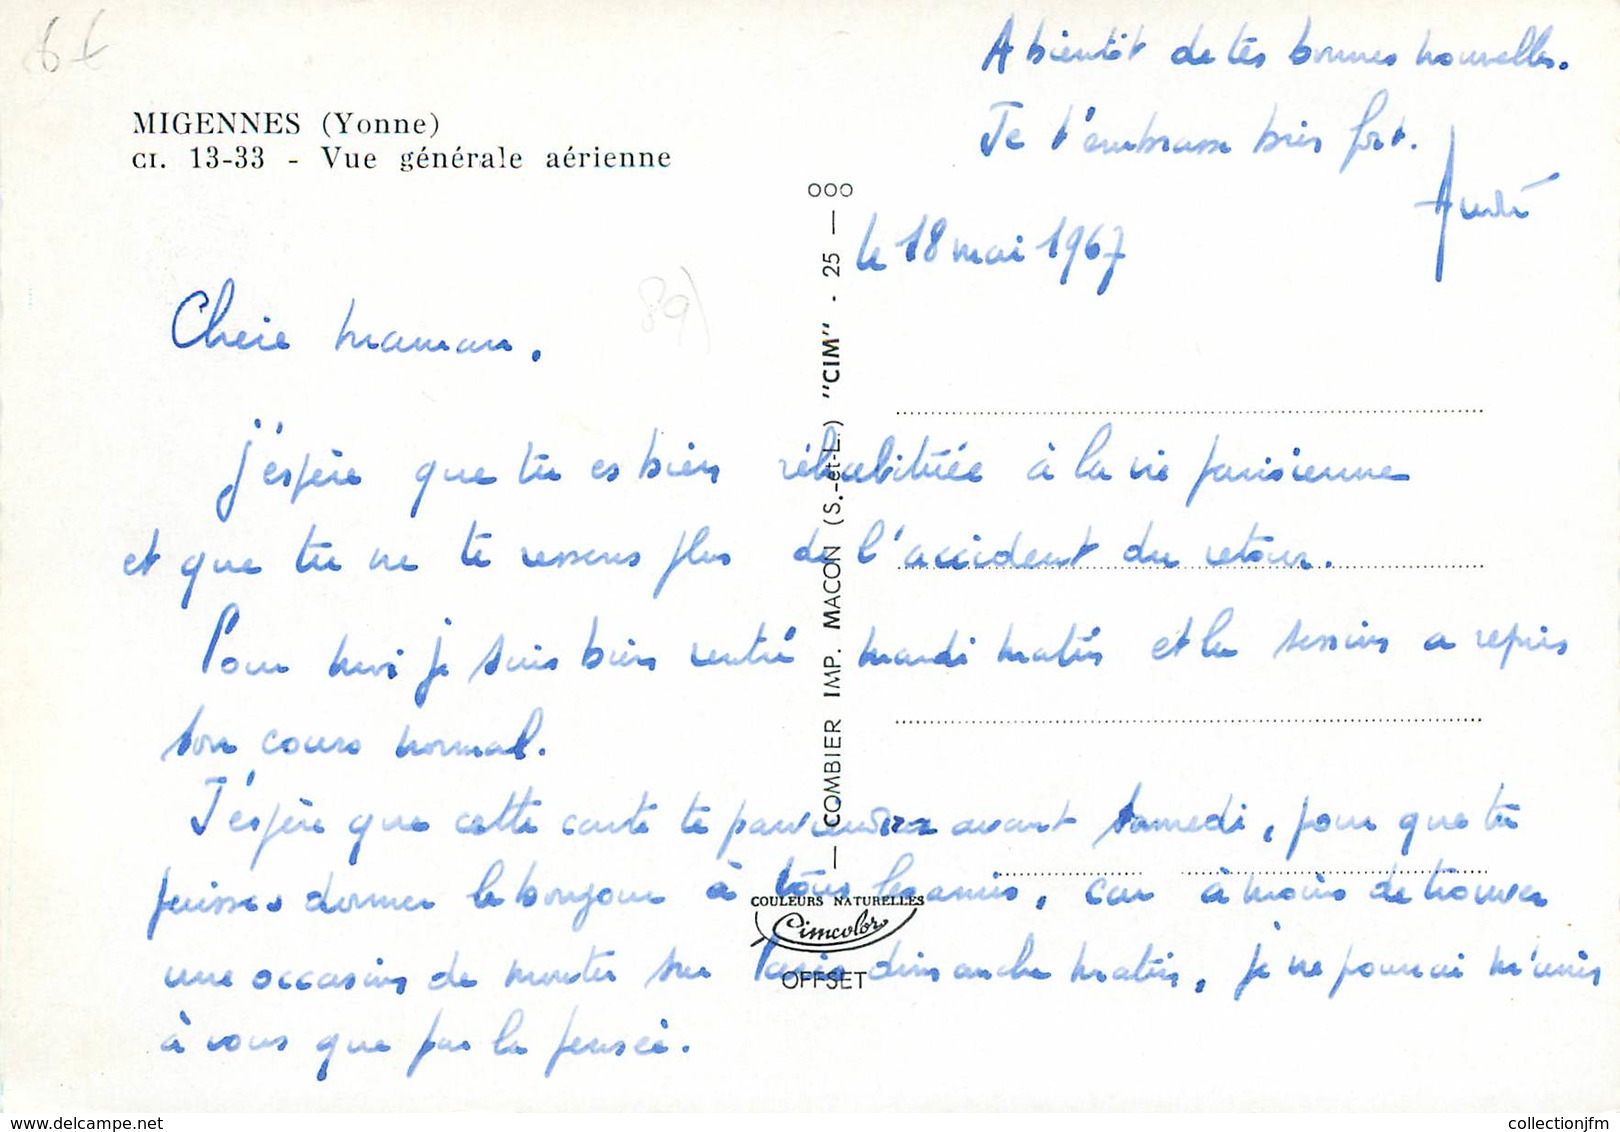 6€
MIGENNES (Yonne)
CI. 13-33 - Vue générale aérienne
le 18 mai 1967
89)
Cherie maman.
J'espère que tu es bien réhabituée à la vie parisienne
et que tu ne te ressens plus de l'accident du retour.
Pour moi je suis bien rentré mardi matin et la session a repris
son cours normal.
J'espère que cette carte te parviendra avant samedi, pour que tu
puisses donner le bonjour à tous les amis, car à moins de trouver
une occasion de monter sur Paris dimanche matin, je ne pourrai m'unir
à vous que par la pensée.
A bientôt de tes bonnes nouvelles.
Je t'embrasse bien fort.
André
COMBIER IMP. MACON (S.-et-L.) "CIM" - 25 — 000
COULEURS NATURELLES
Cimcolor
OFFSET
www.delcampe.net
collectionjfm